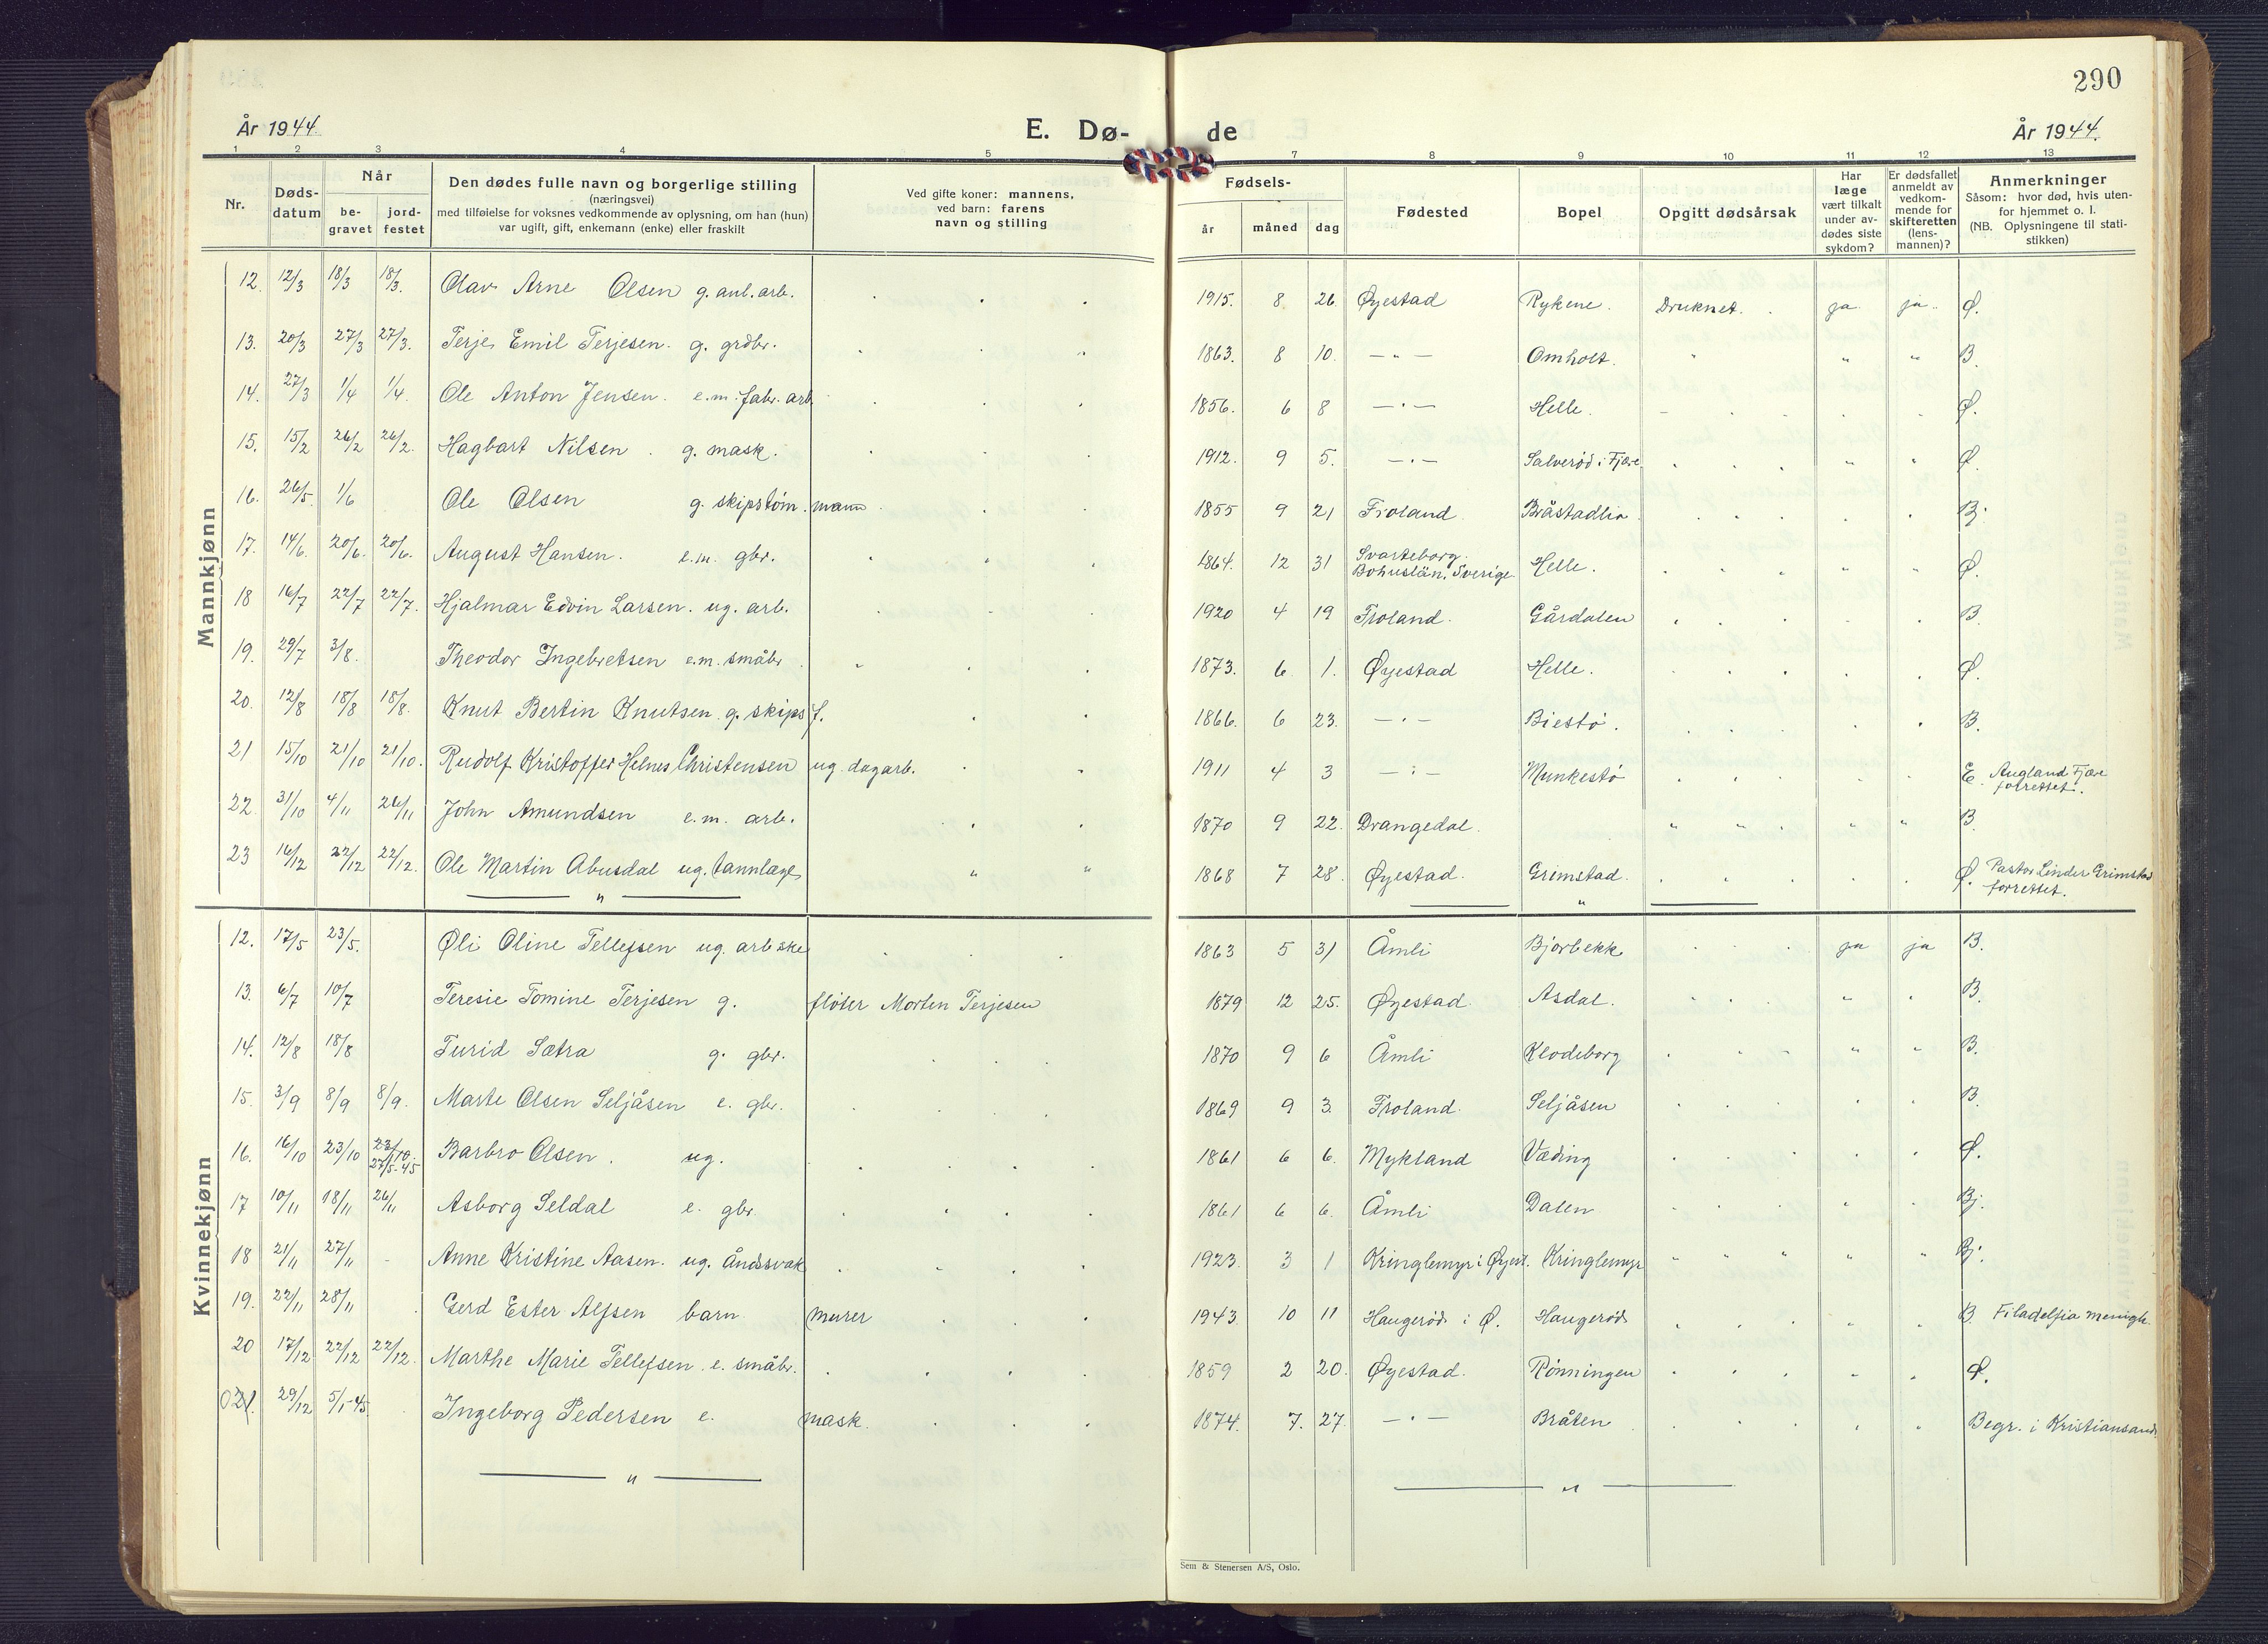 290
År 1944.
E. Dø-
de
År 1944.
1 2 3 4 5 7 8 9 10 11 12 13
Nr.
Døds-
datum
Når
be-
gravet
jord-
festet
Den dødes fulle navn og borgerlige stilling
(næringsvei)
med tilføielse for voksnes vedkommende av oplysning, om han (hun)
var ugift, gift, enkemann (enke) eller fraskilt
Ved gifte koner: mannens,
ved barn: farens
navn og stilling
Fødsels-
år måned dag
Fødested
Bopel
Opgitt dødsårsak
Har
læge
vært tilkalt
under av-
dødes siste
sykdom?
Er dødsfallet
anmeldt av
vedkom-
mende for
skifteretten
(lens-
mannen)?
Anmerkninger
Såsom: hvor død, hvis uten-
for hjemmet o. l.
(NB. Oplysningene til stati-
stikken)
Mannkjønn
12. 12/3 18/3 18/3. Olav Arne Olsen g. anl. arb. 1915. 8 26. Øyestad Rykene. Druknet. ja ja Ø.
13. 20/3 27/3 27/3. Terje Emil Terjesen. g. grdbr. 1863. 8 10. —"— Omholt. " " " B.
14. 27/3 1/4 1/4. Ole Anton Jensen. e.m. fabr. arb. 1856. 6 8 —"— Helle. Ø.
15. 15/2 26/2 26/2. Hagbart Nilsen. g. mask. 1912. 9 5. —"— Salverød i Fjære Ø.
16. 26/5. 1/6 Ole Olsen g. skipstømmann 1855 9 21 Froland Bråstadlia Bj.
17. 14/6. 20/6. 20/6. August Hansen. e.m. gbr. 1864. 12 31 Svarteborg.
Bohuslän. Sverige Helle. Ø.
18 16/7 22/7 22/7. Hjalmar Edvin Larsen. ug. arb. 1920 4 19 Froland. Gårdalen B.
19. 29/7 3/8. Theodor Ingebretsen e.m. småbr. 1873. 6 1. Øyestad Helle. Ø.
20. 12/8 18/8 18/8. Knut Bertin Knutsen g. skipsf. 1866. 6 23. —"— Biestø. B.
21 15/10 21/10 21/10. Rudolf Kristoffer Helnes Christensen ug. dagarb. 1911 4 3 —"— Munkestø E. Augland Fjære
forrettet.
22. 31/10 4/11 26/11 John Amundsen e.m. arb. 1870 9 22. Drangedal. " " " " B.
23 16/12 22/12 22/12. Ole Martin Abusdal ug. tannlæge " " 1868 7 28. Øyestad. Grimstad. Ø. Pastor Linder Grimstad
forrettet.
— " —
— " —
Kvinnekjønn
12. 17/5 23/5. Øli Oline Tellefsen ug. arbeske 1863 5 31 Åmli Bjorbekk ja ja B.
13. 6/7 10/7 Teresie Tomine Terjesen g. fløter Morten Terjesen 1879 12 25. Øyestad Asdal. B.
14. 12/8 18/8 Turid Sætra g. gbr. 1870 9 6 Åmli Klodeborg B.
15. 3/9 8/9 8/9. Marte Olsen Seljåsen e. gbr. 1869 9 3. Froland. Seljåsen B.
16. 16/10 23/10 23/10.
27/5-45 Barbro Olsen. ug. 1861 6 6. Mykland Væding Ø.
17 10/11 18/11 26/11 Asborg Seldal e. gbr. 1861 6 6. Åmli Dalen Bj.
18 21/11 27/11 Anne Kristine Aasen. ug. Åndssvak 1923. 3 1 Kringlemyr i Øyest. Kringlemyr " " " " " Bj.
19. 22/11 28/11 Gerd Ester Alfsen barn murer 1943. 10 11 Haugerød i Ø. Haugerød B. Filadelfia menigh.
20 17/12 22/12 22/12. Marthe Marie Tellefsen e. småbr. 1859 2 20. Øyestad. Rønningen Ø.
21. 29/12 5/1-45 Ingeborg Pedersen e. mask. 1874. 7. 27. —"— Bråten Begr. i Kristiansand.
— " —
— " —
Sem & Stenersen A/S, Oslo.